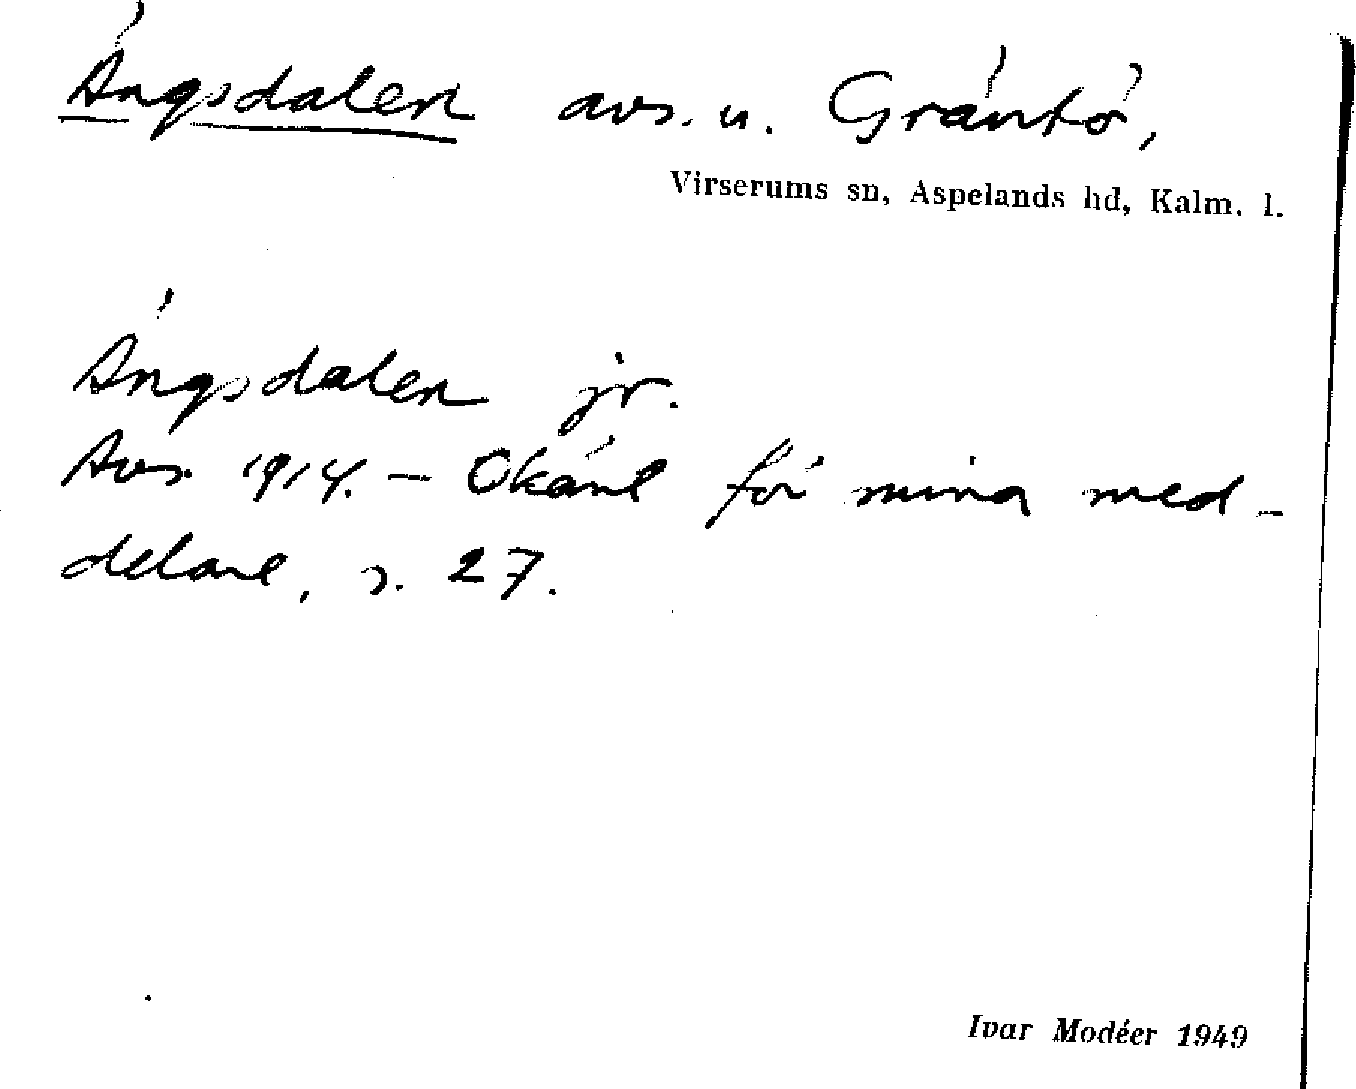 Ängsdalen avs. u. Gräntö,
Virserums sn, Aspelands hd, Kalm. l.
Ängsdalen jr.
Avs. 1914. – Okänt för mina med-
delare, s. 27.
Ivar Modéer 1949